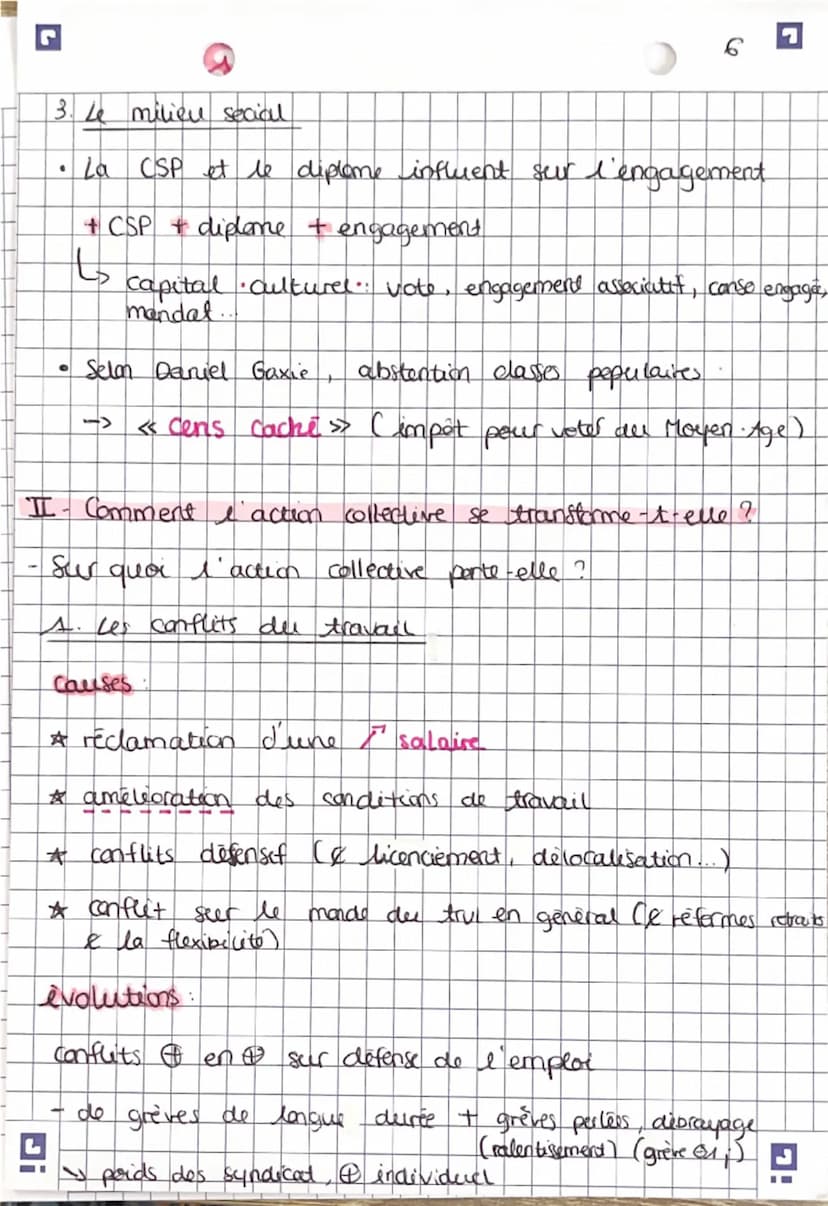 6
3. Le milieu social
• La CSP et le diplome influent sur l'engagement
+ CSP + diplome + engagement
↳ capital culturel : vote, engagement associatif, conso engagée,
mandat...
• Selon Daniel Gaxie, abstention classes populaires
-> « cens caché » (impôt pour voter au Moyen-Age)
II - Comment l'action collective se transforme-t-elle ?
- Sur quoi l'action collective porte-elle ?
1. Les conflits du travail
causes :
☆ réclamation d'une ↗ salaire
☆ amélioration des conditions de travail
☆ conflits défensif (& licenciement, délocalisation...)
☆ conflit sur le monde du trvl en général (& réformes retraits
& la flexibilité)
évolutions :
conflits ⊕ en ⊕ sur défense de l'emploi
- de grèves de longue durée + grèves perlées, débrayage
(ralentisement) (grève
↘ poids des syndicat, ⊕ individuel